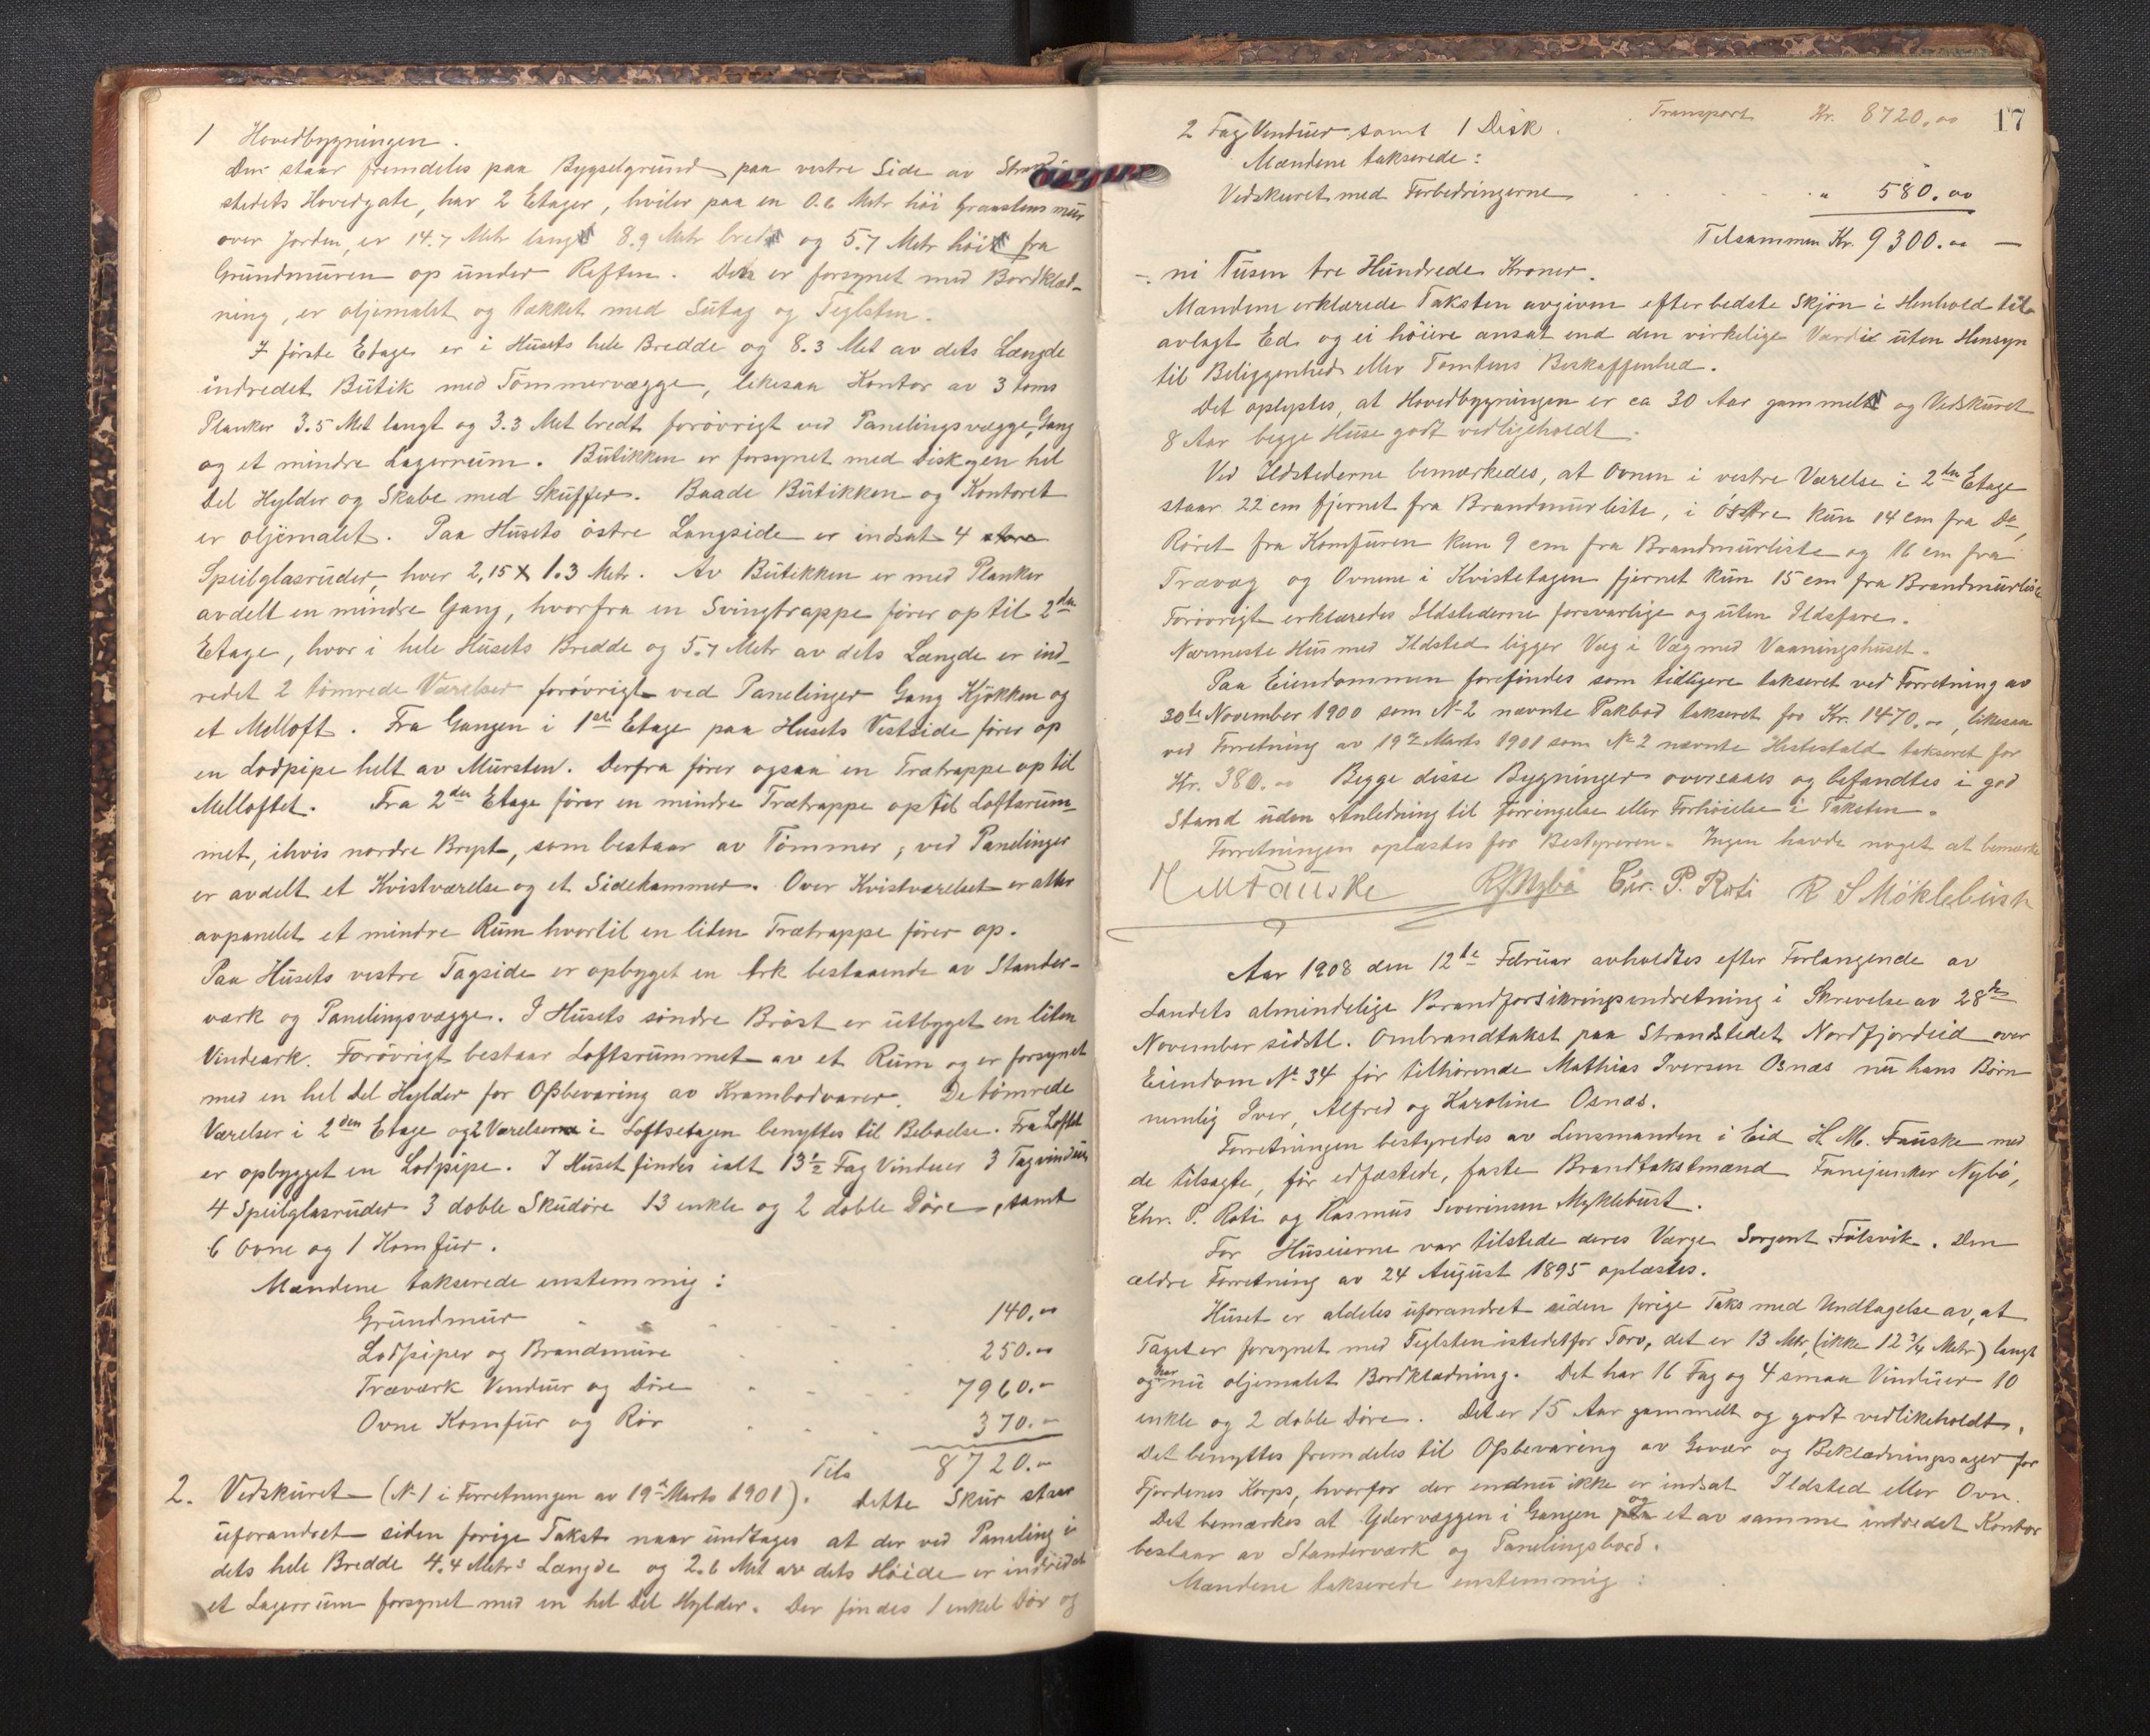 1 Hovedbygningen.
Den staar fremdeles paa Bygselgrund paa vestre Side av Strand
stedets Hovedgate, har 2 Etager, hviler paa en 0.6 Metr höi Graastensmur
over Jorden, er 14.7 Metr lang 8.9 Metr bred og 5.7 Metr höi fra
Grundmuren op under Raften. Den er forsynet med Bordklæd-
ning, er oljemalet og tækket med Sutag og Teglsten.
I förste Etage er i Husets hele Bredde og 8.3 Met av dets Længde
indredet Butik med Tömmervægge, likesaa Kontor av 3 toms
Planker 3.5 Met langt og 3.3 Met bredt forövrigt ved Panelingsvægge, Gang
og et mindre Lagerrum. Butikken er forsynet med Disk og en hel
Del Hylder og Skabe med Skuffer. Baade Butikken og Kontoret
er oljemalet. Paa Husets östre Langside er indsat 4 store
Speilglasruder, hver 2,15 x 1.3 Metr. Av Butikken er med Planker
avdelt en mindre Gang, hvorfra en Svingtrappe förer op til 2den
Etage, hvor i hele Husets Bredde og 5.7 Metr av dets Længde er ind-
redet 2 tömrede Værelser forövrigt ved Panelinger Gang Kjökken og
et Melloft. Fra Gangen i 1ste Etage paa Husets Vestside förer op
en Lodpipe helt av Mursten. Derfra förer ogsaa en Trætrappe op til
Melloftet. Fra 2den Etage förer en mindre Trætrappe op til Loftsrum-
met, ihvis nordre Bryst, som bestaar av Tömmer, ved Panelinger
er avdelt et Kvistværelse og et Sidekammer. Over Kvistværelset er atter
avpanelet et mindre Rum hvortil en liten Trætrappe förer op.
Paa Husets vestre Tagside er opbygget en Ark bestaaende av Stander-
værk og Panelingsvægge. I Husets söndre Bröst er utbygget en liten
Vindeark. Forövrigt bestaar Loftsrummet av et Rum og er forsynet
med en hel Del Hylder for Opbevaring av Krambodvarer. De tömrede
Værelser i 2den Etage og 2 Værelser i Loftsetagen benyttes til Beboelse. Fra Loftet
er opbygget en Lodpipe. I Huset findes ialt 13½ Fag Vinduer 3 Tagvinduer
4 Speilglasruder 3 doble Skudöre 13 enkle og 2 doble Döre, samt
6 Ovne og 1 Komfur.
Mændene takserede enstemmig:
Grundmur 140.00
Lodpiper og Brandmure 250.00
Træværk Vinduer og Döre 7960.-
Ovne Komfur og Rör 370.-
Tils 8720.-
2. Vedskuret (No 1 i Forretningen av 19de Marts 1901). Dette Skur staar
uforandret siden forige Takst naar undtages at der ved Paneling i
dets hele Bredde 4.4 Metrs Længde og 2.6 Met av dets Höide er indredet
et Lagerrum forsynet med en hel Del Hylder. Der findes 1 enkel Dör og
17
Transport Kr. 8720.00
2 Fag Vinduer samt 1 Disk.
Mændene takserede:
Vedskuret med Forbedringerne " 580.00
Tilsammen Kr. 9300.00 —
ni Tusen tre Hundrede Kroner.
Mændene erklærede Taksten avgiven efter bedste Skjön i Henhold til
avlagt Ed og ei höiere ansat end den virkelige Værdie uten Hensyn
til Beliggenhed eller Tomtens Beskaffenhed.
Det oplystes, at Hovedbygningen er ca 30 Aar gammel og Vedskuret
8 Aar begge Huse godt vedligeholdt.
Ved Ildstederne bemærkedes, at Ovnen i vestre Værelse i 2den Etage
staar 22 cm fjernet fra Brandmurliste, i östre kun 14 cm fra Do,
Röret fra Komfuren kun 9 cm fra Brandmurliste og 16 cm fra
Trævæg og Ovnene i Kvistetagen fjernet kun 15 cm fra Brandmurliste
Forövrigt erklæredes Ildstederne forsvarlige og uten Ildsfare.
Nærmeste Hus med Ildsted ligger Væg i Væg med Vaaningshuset.
Paa Eiendommen forefindes som tidligere takseret ved Forretning av
30te November 1900 som No 2 nævnte Pakbod takseret for Kr. 1470.00, likesaa
ved Forretning av 19de Marts 1901 som No 2 nævnte Hestestald takseret for
Kr. 380.00 Begge disse Bygninger oversaaes og befandtes i god
Stand uden Anledning til Forringelse eller Forhöielse i Taksten.
Forretningen oplæstes for Bestyreren. Ingen havde noget at bemærke
H M Fauske R Nybö Chr. P. Roti R S Möklebust
Aar 1908 den 12te Februar avholdtes efter Forlangende av
Landets almindelige Brandforsikringsindretning i Skrivelse av 28de
November sidstl. Ombrandtakst paa Strandstedet Nordfjordeid over
Eiendom No 34 för tilhörende Mathias Iversen Osnæs nu hans Börn
nemlig Iver, Alfred og Karoline Osnæs.
Forretningen bestyredes av Lensmanden i Eid H. M. Fauske med
de tilsagte, för edfæstede, faste Brandtakstmænd Fanejunker Nybö,
Chr. P. Roti og Rasmus Severinsen Myklebust.
For Huseierne var tilstede deres Værge Sergent Fölsvik. Den
ældre Forretning av 24 August 1895 oplæstes.
Huset er aldeles uforandret siden forige Taks med Undtagelse av, at
Taget er forsynet med Teglsten istedetfor Torv, det er 13 Metr (ikke 12¾ Metr) langt
og har nu oljemalet Bordklædning. Det har 16 Fag og 4 smaa Vinduer 10
enkle og 2 doble Döre. Det er 15 Aar gammelt og godt vedlikeholdt.
Det benyttes fremdeles til Opbevaring av Gevær og Beklædningssager for
Fjordenes Korps, hvorfor der endnu ikke er indsat Ildsted eller Ovn.
Det bemærkes at Ydervæggen i Gangen og et av samme indredet Kontor
bestaar av Standerværk og Panelingsbord.
Mændene takserede enstemmig: